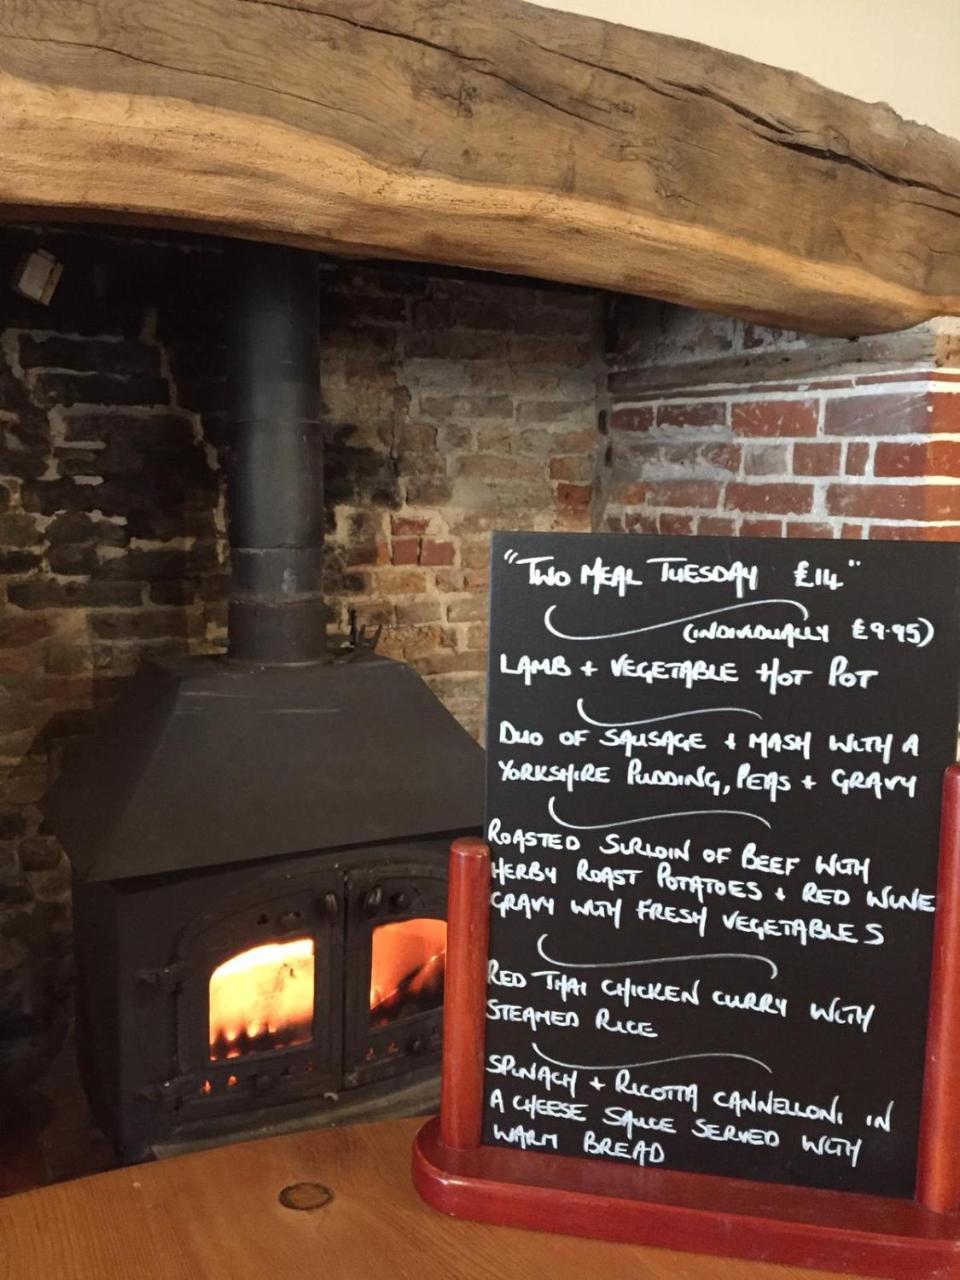 "TWO MEAL TUESDAY £14"
(INDIVIDUALLY £9.95)
LAMB + VEGETABLE HOT POT
DUO OF SAUSAGE + MASH WITH A
YORKSHIRE PUDDING, PEAS + GRAVY
ROASTED SURLOIN OF BEEF WITH
HERBY ROAST POTATOES + RED WINE
GRAVY WITH FRESH VEGETABLES
RED THAI CHICKEN CURRY WITH
STEAMED RICE
SPINACH + RICOTTA CANNELLONI IN
A CHEESE SAUCE SERVED WITH
WARM BREAD